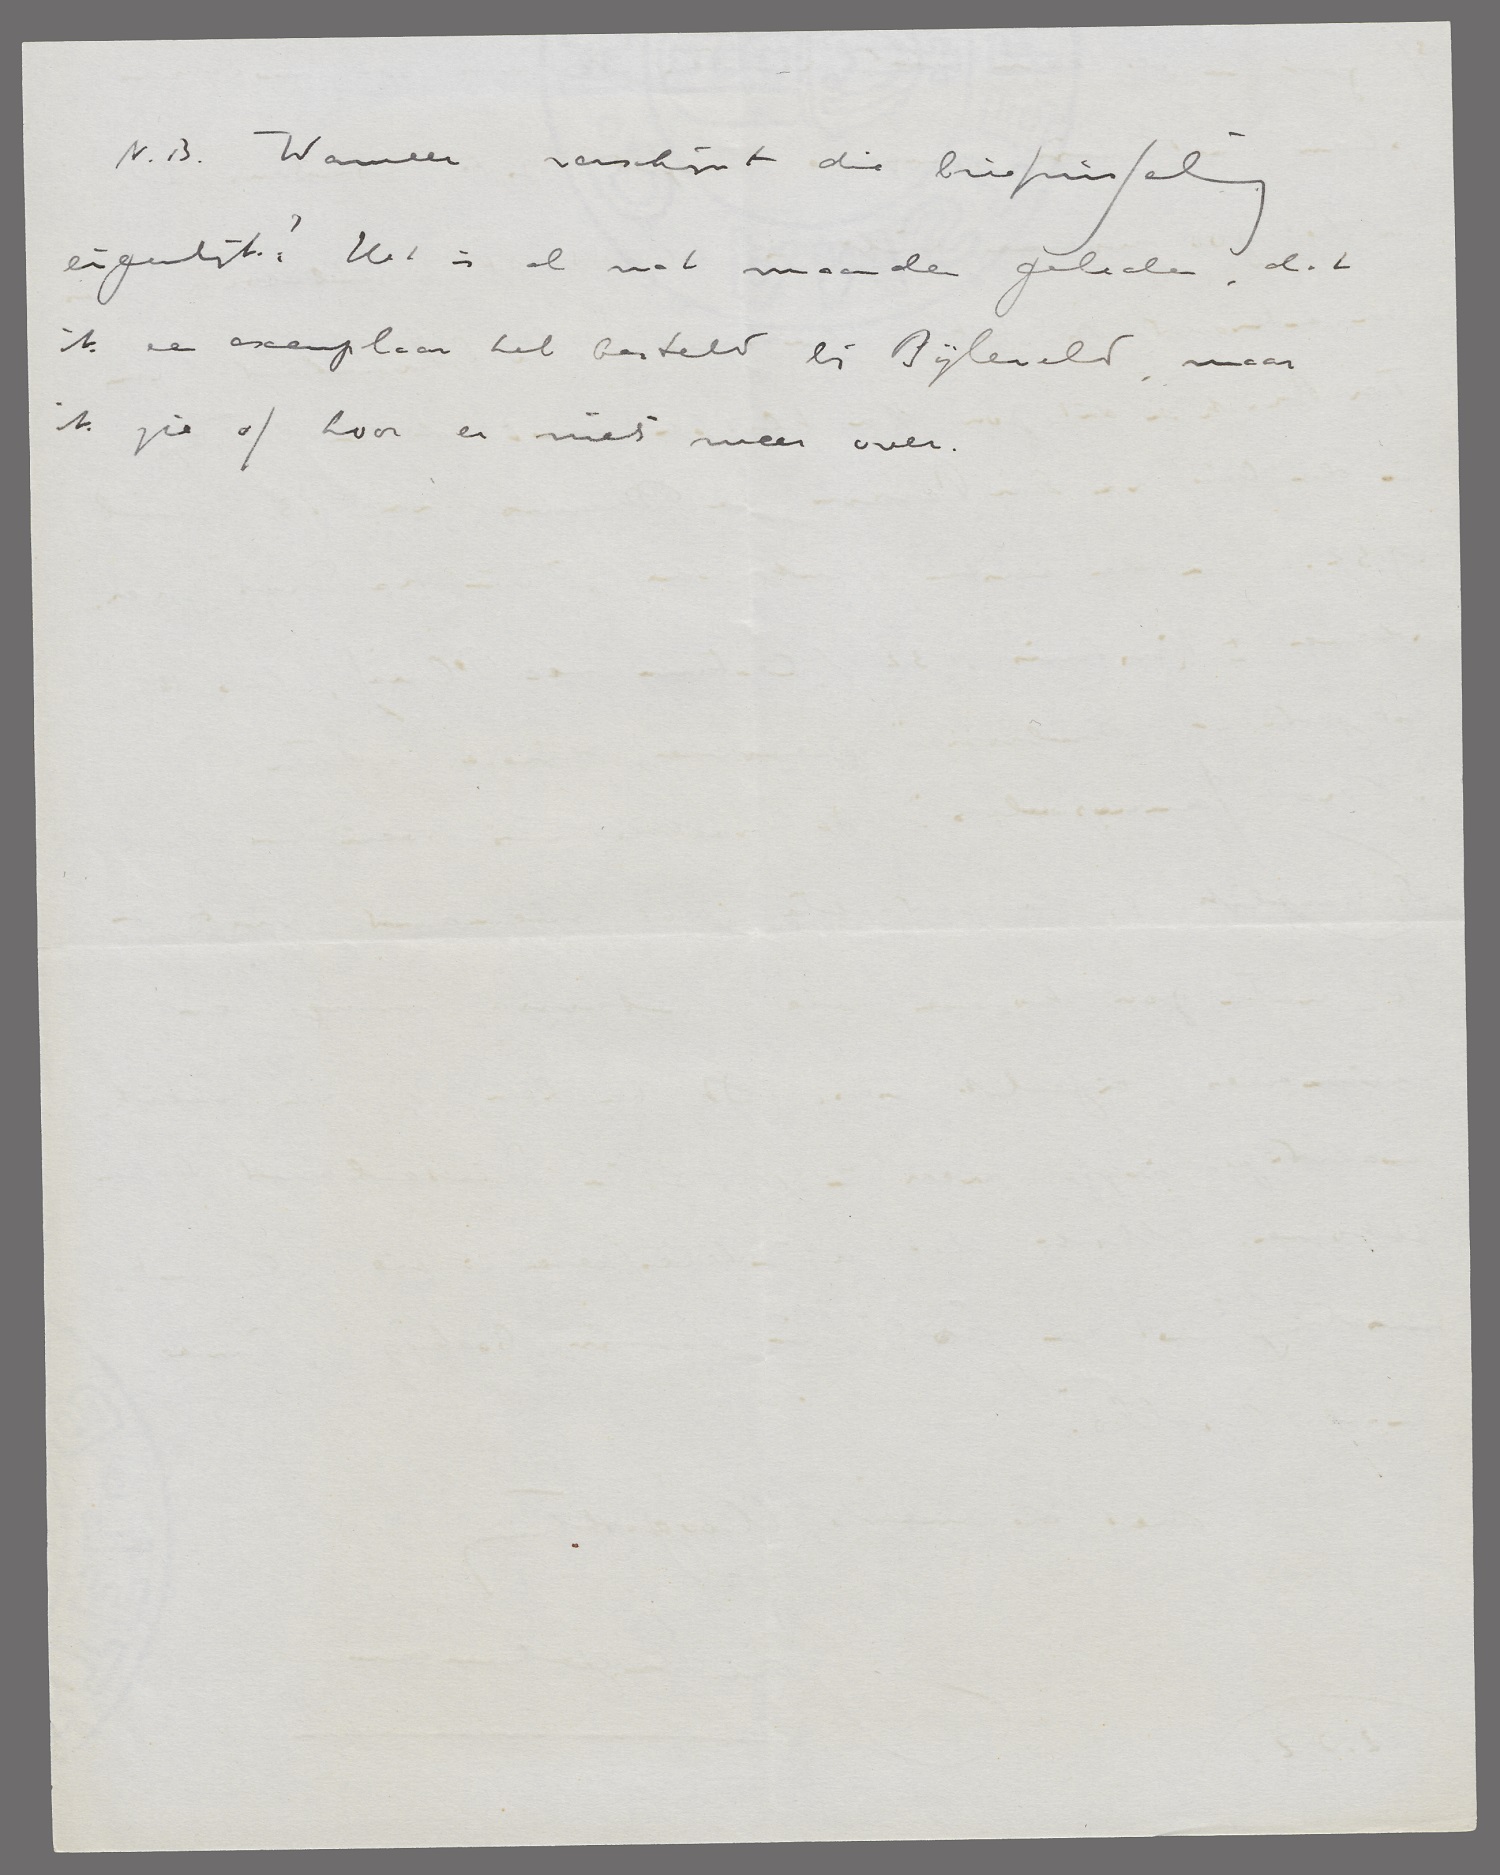 N.B. Wanneer verschijnt die briefwisseling
eigenlijk? Het is al wat maanden geleden, dat
ik een exemplaar heb besteld bij Bijleveld, maar
ik zie of hoor er niets meer over.